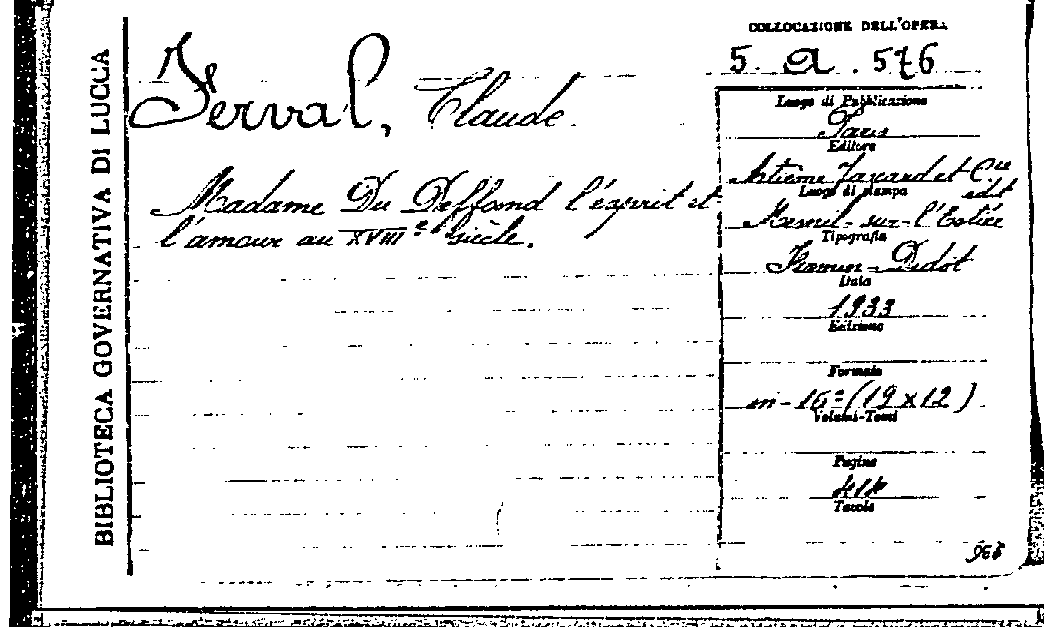 BIBLIOTECA GOVERNATIVA DI LUCCA
Ferval, Claude.
Madame Du Deffand l'esprit et
l'amour au XVIIIe siècle.
COLLOCAZIONE DELL'OPERA
5. a. 576
Luogo di Pubblicazione
Paris
Editore
Fayard et Cie
edit
Luogo di stampa
Mesnil-sur-l'Estrée
Tipografia
Firmin-Didot
Data
1933
Edizione
Formato
in-16º (19x12)
Volumi-Tomi
Pagine
Tavole